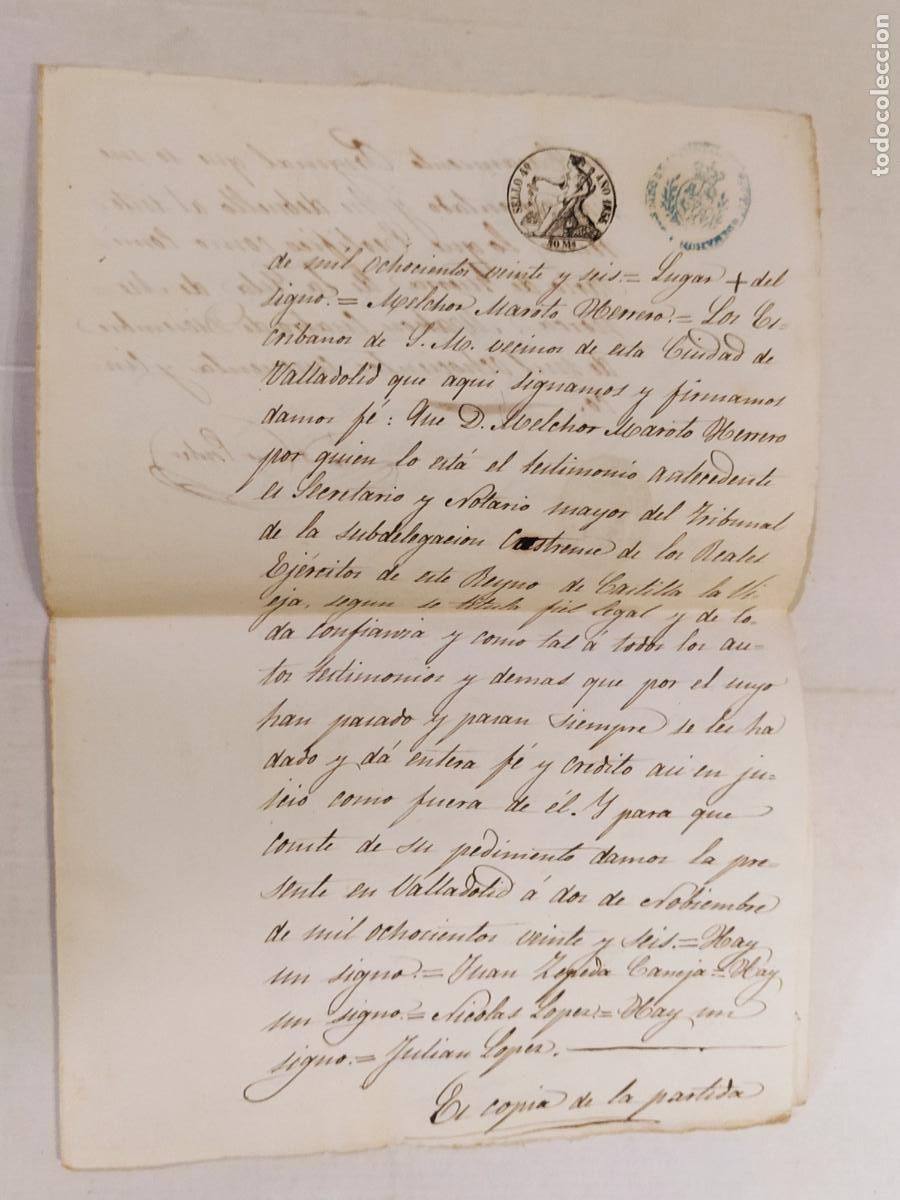 SELLO 4º
AÑO 1858
40 Ms
de mil ochocientos veinte y seis.= Lugar + del
signo.= Melchor Maroto Herrero.= Los Es-
cribanos de S. M. vecinos de esta Ciudad de
Valladolid que aqui signamos y firmamos
damos fé: Que D. Melchor Maroto Herrero
por quien lo está el testimonio antecedente
es Secretario y Notario mayor del Tribunal
de la subdelegacion Castrense de los Reales
Ejércitos de este Reyno de Castilla la Vi-
eja, segun se titula fiel legal y de to-
da confianza y como tal á todos los au-
tos testimonios y demas que por el suyo
han pasado y pasan siempre se les ha
dado y dá entera fé y credito asi en jui-
cio como fuera de él. Y para que
conste de su pedimento damos la pre-
sente en Valladolid á dos de Nobiembre
de mil ochocientos veinte y seis.= Hay
un signo.= Juan Zepeda Caneja = Hay
un signo.= Nicolas Lopez.= Hay un
signo.= Julian Lopez.
Es copia de la partida
todocoleccion